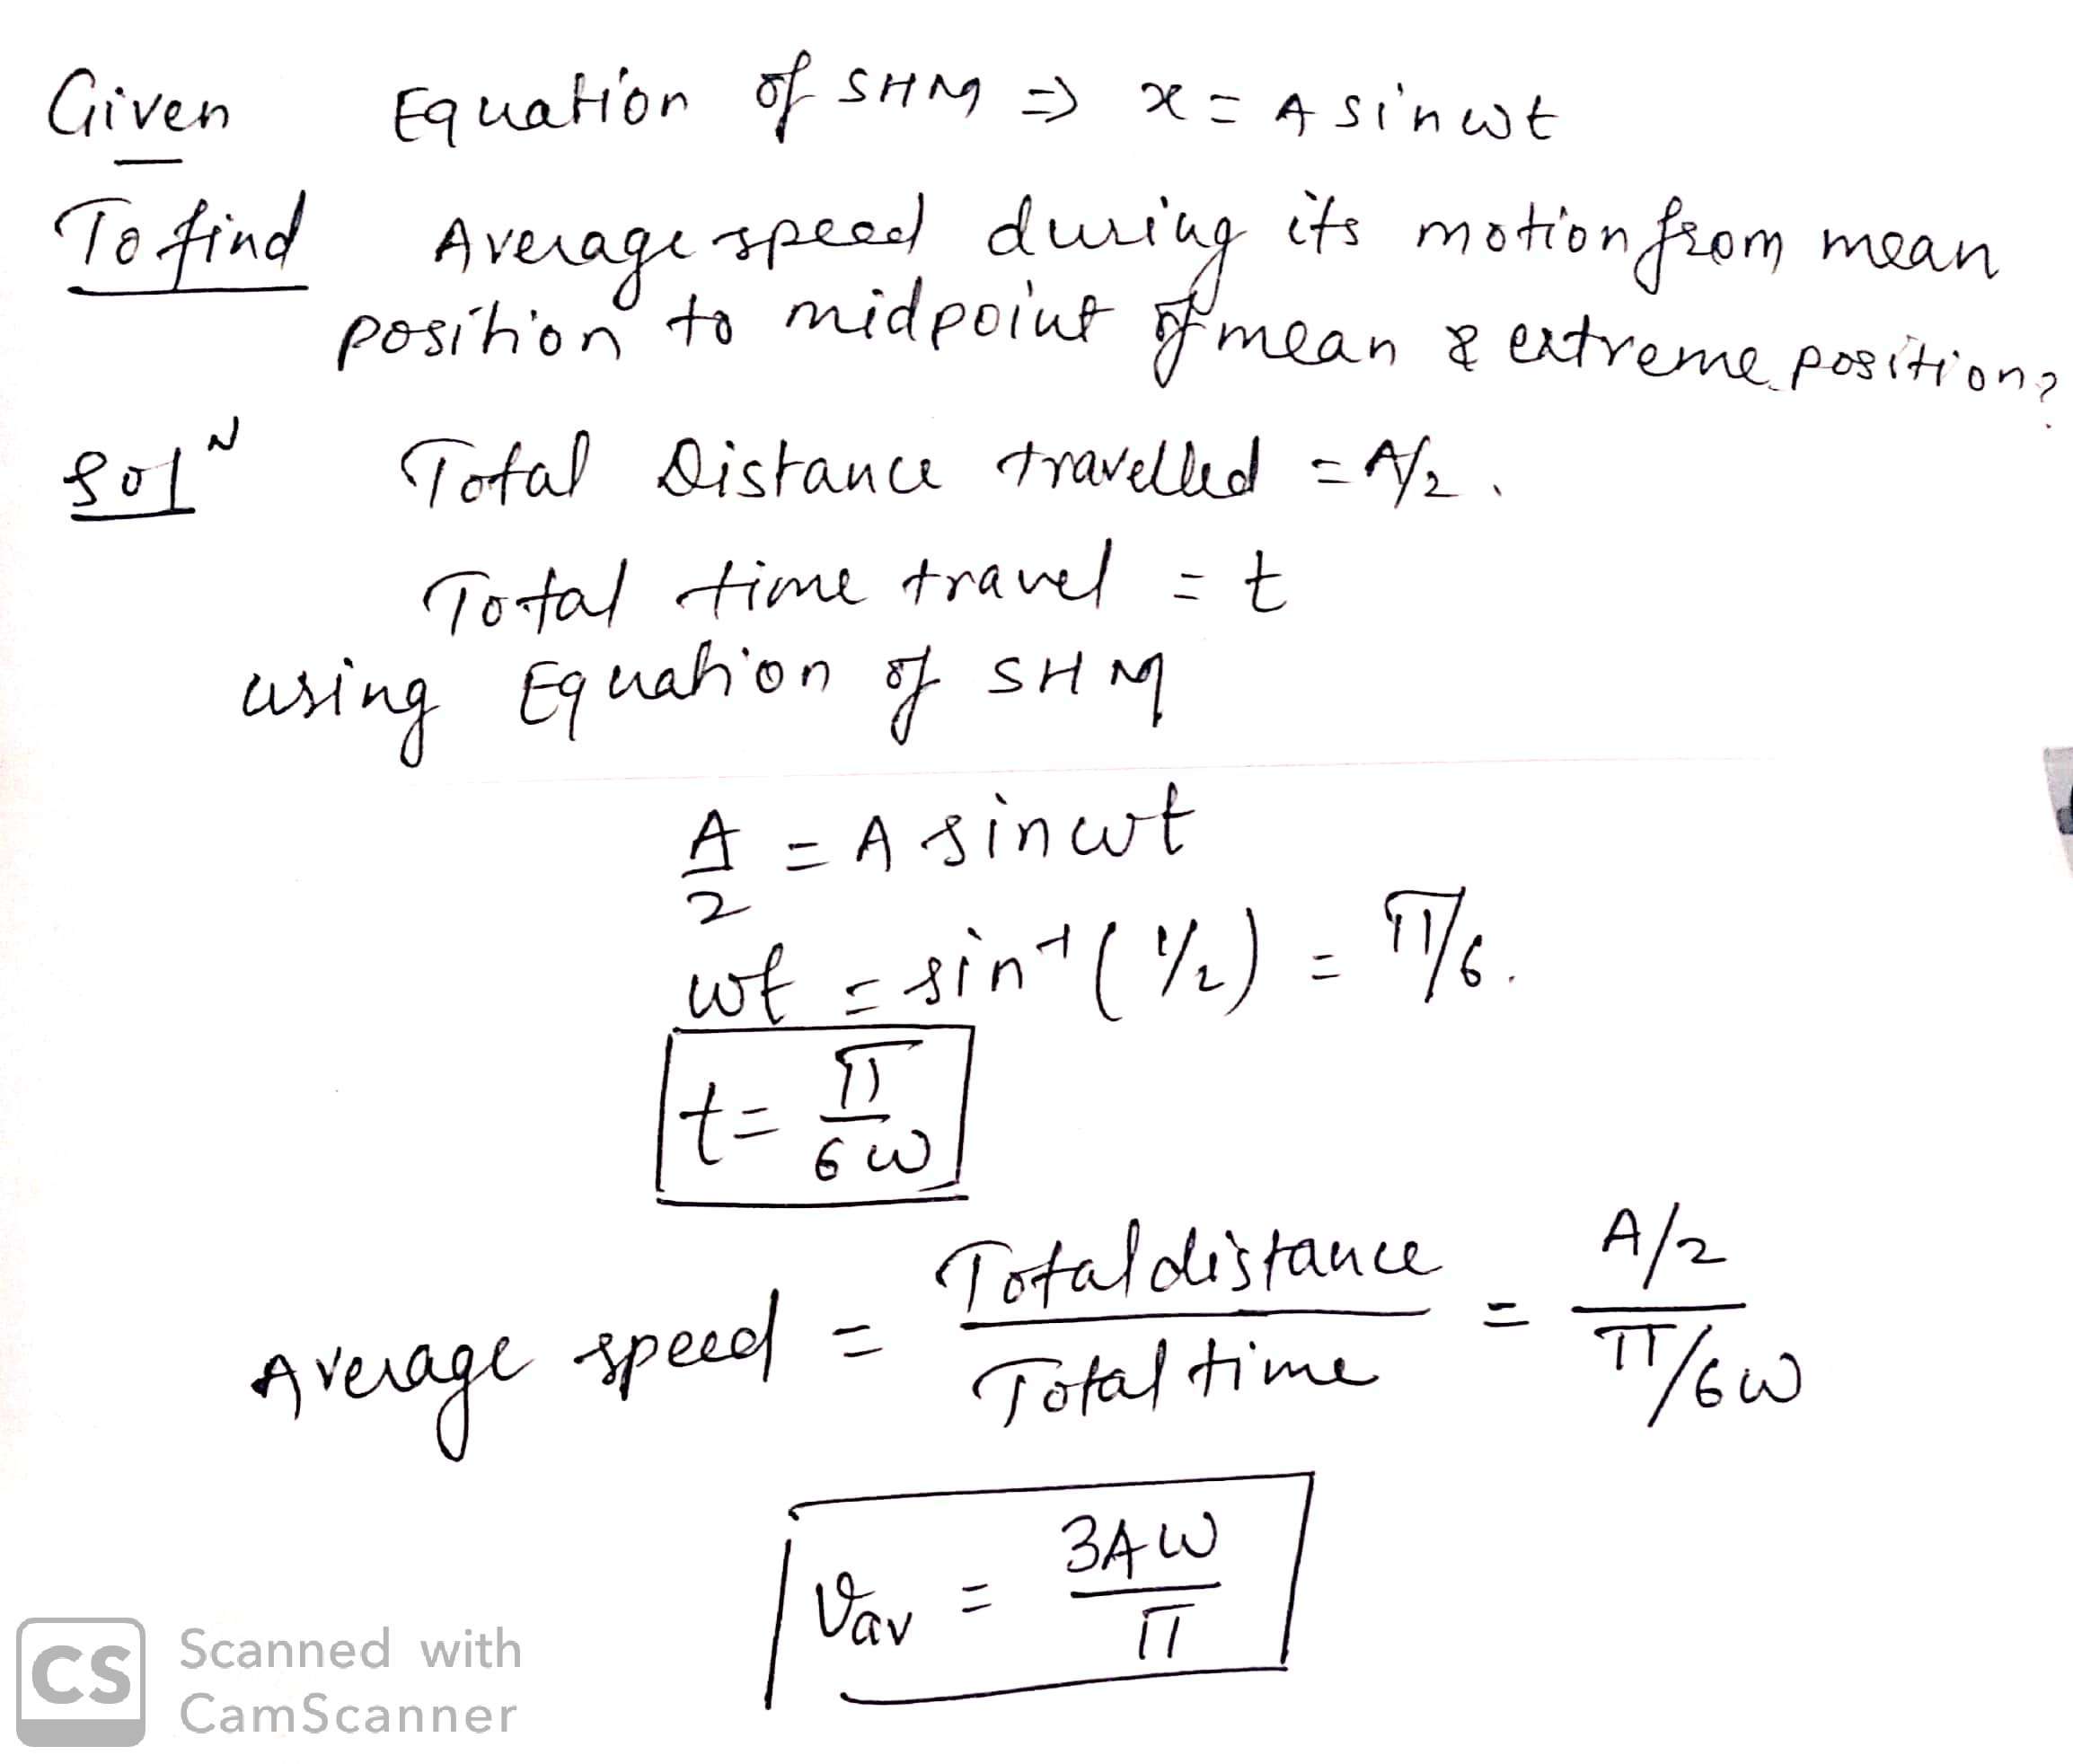 Given Equation of SHM ⇒ x = A sinωt
To find Average speed during its motion from mean
position to midpoint of mean & extreme position?
Solᴺ Total Distance travelled = A/2.
Total time travel = t
using Equation of SHM
A/2 = A sinωt
ωt = sin⁻¹(1/2) = π/6.
t = π/6ω
Average speed = Total distance/Total time = (A/2)/(π/6ω)
Vav = 3Aω/π
CS Scanned with
CamScanner